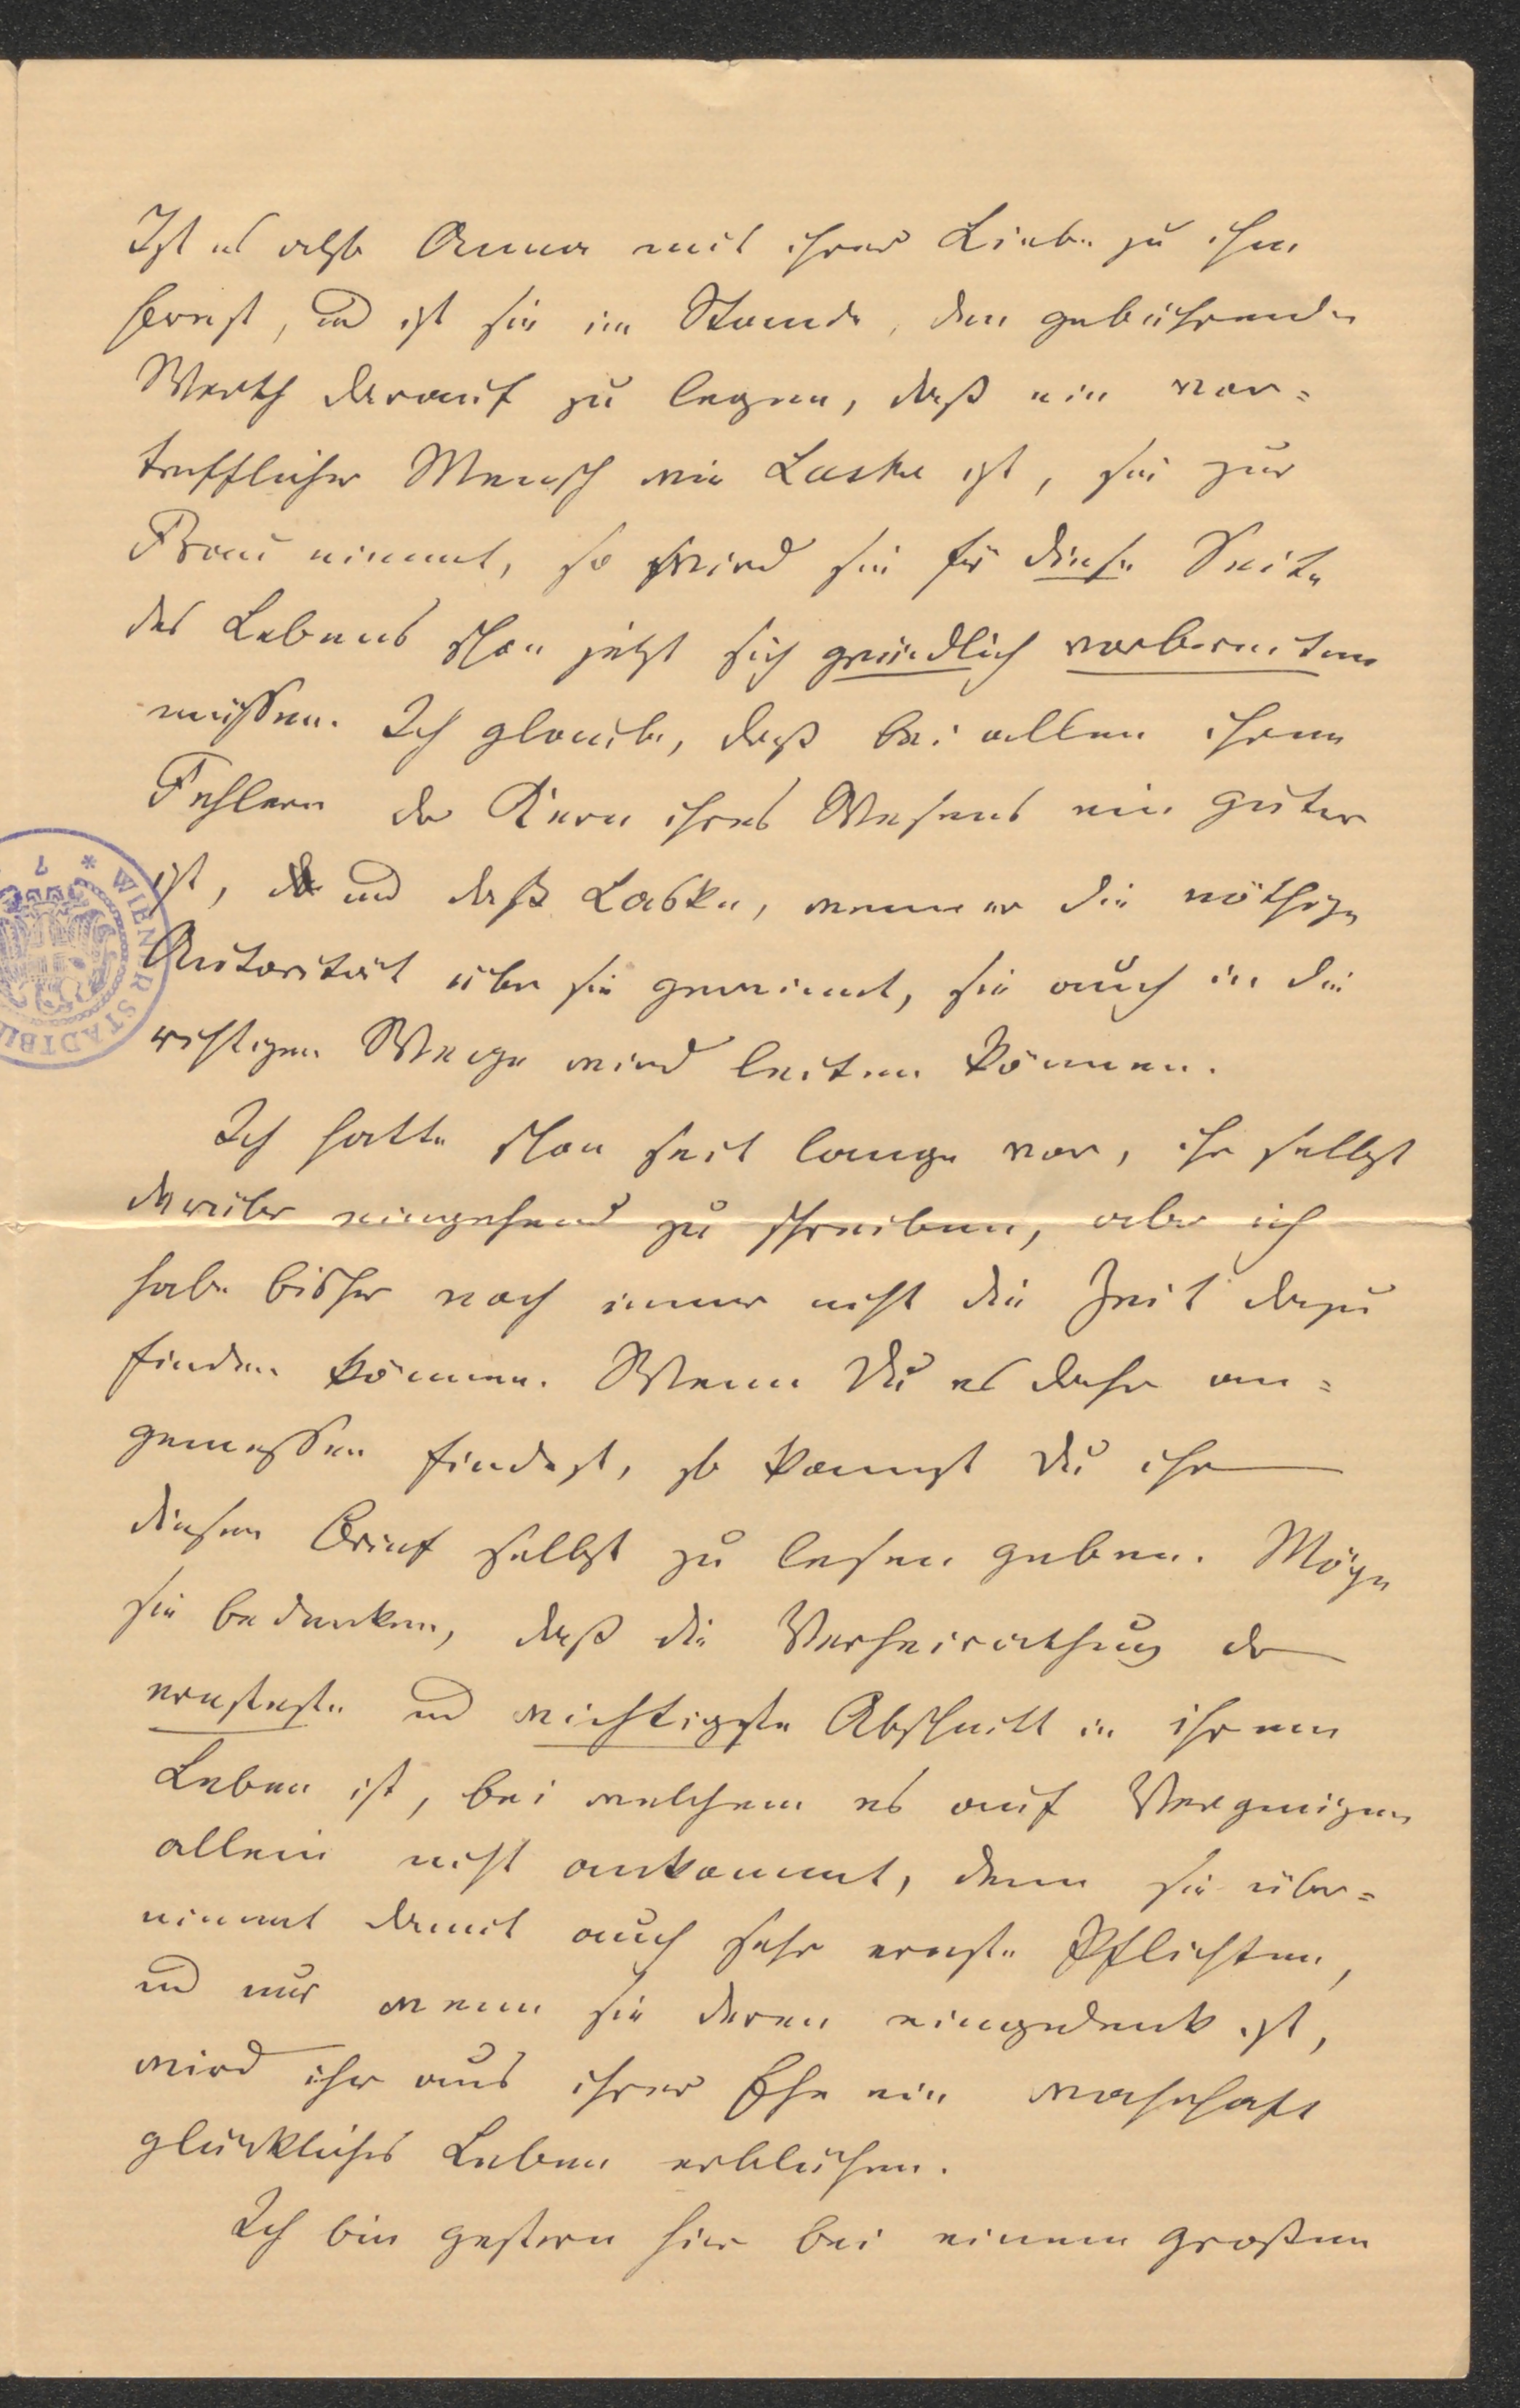 Ist es also Anna mit ihrer Liebe zu ihm
Ernst, und ist sie im Stande, den gebührenden
Werth darauf zu legen, daß ein vor-
trefflicher Mensch wie Laska ist, sie zur
Frau nimmt, so wird sie für diese Seite
des Lebens schon jetzt sich gründlich vorbereiten
müssen. Ich glaube, daß bei allen ihren
Fehlern der Kern ihres Wesens ein guter
ist, und daß Laska, wenn er die nöthige
Autorität über sie gewinnt, sie auch in die
richtigen Wege wird leiten können.
Ich hatte schon seit lange vor, ihr selbst
darüber eingehend zu schreiben, aber ich
habe bisher noch immer nicht die Zeit dazu
finden können. Wenn Du es daher an-
gemessen findest, so kannst Du ihr
diesen Brief selbst zu lesen geben. Möge
sie bedenken, daß die Verheirathung der
ernsteste und wichtigste Abschnitt in ihrem
Leben ist, bei welchem es auf Vergnügen
allein nicht ankommt, denn sie über-
nimmt damit auch sehr ernste Pflichten,
und nur wenn sie deren eingedenk ist,
wird ihr aus ihrer Ehe ein wahrhaft
glückliches Leben erblühen.
Ich bin gestern hier bei einem großen
WIENER STADTBI